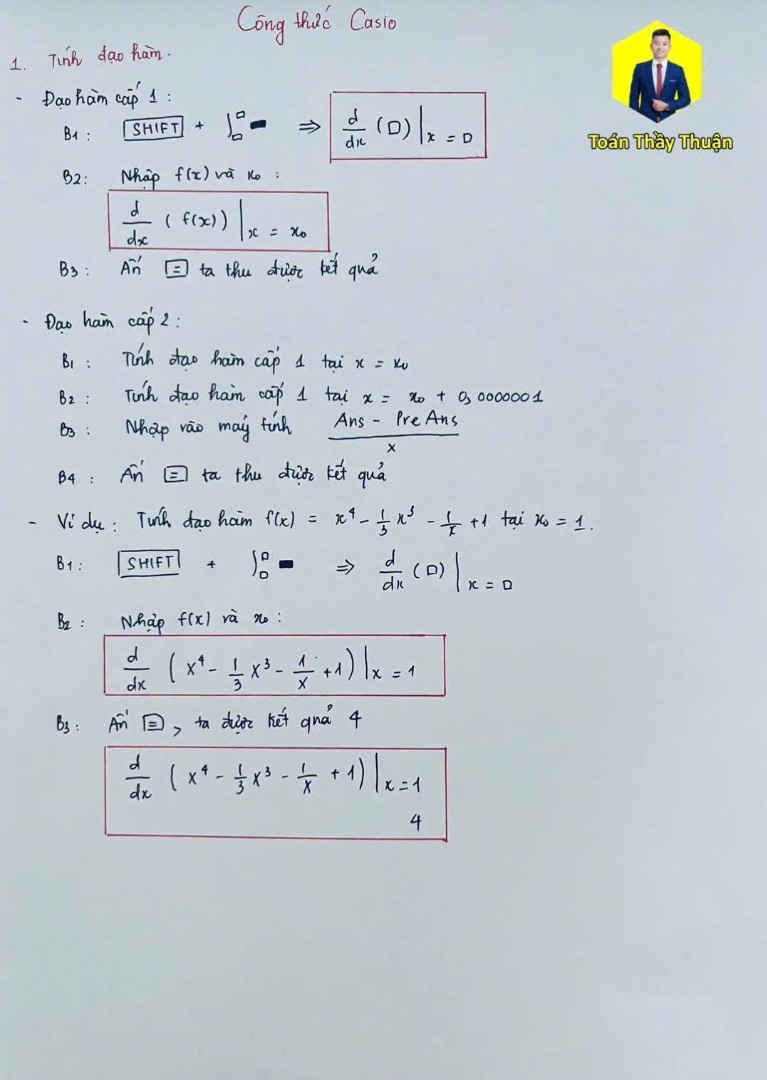 Công thức Casio
Toán Thầy Thuận
1. Tính đạo hàm.
- Đạo hàm cấp 1:
B1: SHIFT + ∫□□ ⇒ d/dx (□)|x = □
B2: Nhập f(x) và x₀ :
d/dx (f(x))|x = x₀
B3: Ấn = ta thu được kết quả
- Đạo hàm cấp 2:
B1: Tính đạo hàm cấp 1 tại x = x₀
B2: Tính đạo hàm cấp 1 tại x = x₀ + 0,0000001
B3: Nhập vào máy tính (Ans - PreAns)/x
B4: Ấn = ta thu được kết quả
- Ví dụ: Tính đạo hàm f(x) = x⁴ - 1/3 x³ - 1/x + 1 tại x₀ = 1.
B1: SHIFT + ∫□□ ⇒ d/dx (□)|x = □
B2: Nhập f(x) và x₀:
d/dx (x⁴ - 1/3 x³ - 1/x + 1)|x = 1
B3: Ấn =, ta được kết quả 4
d/dx (x⁴ - 1/3 x³ - 1/x + 1)|x = 1
4